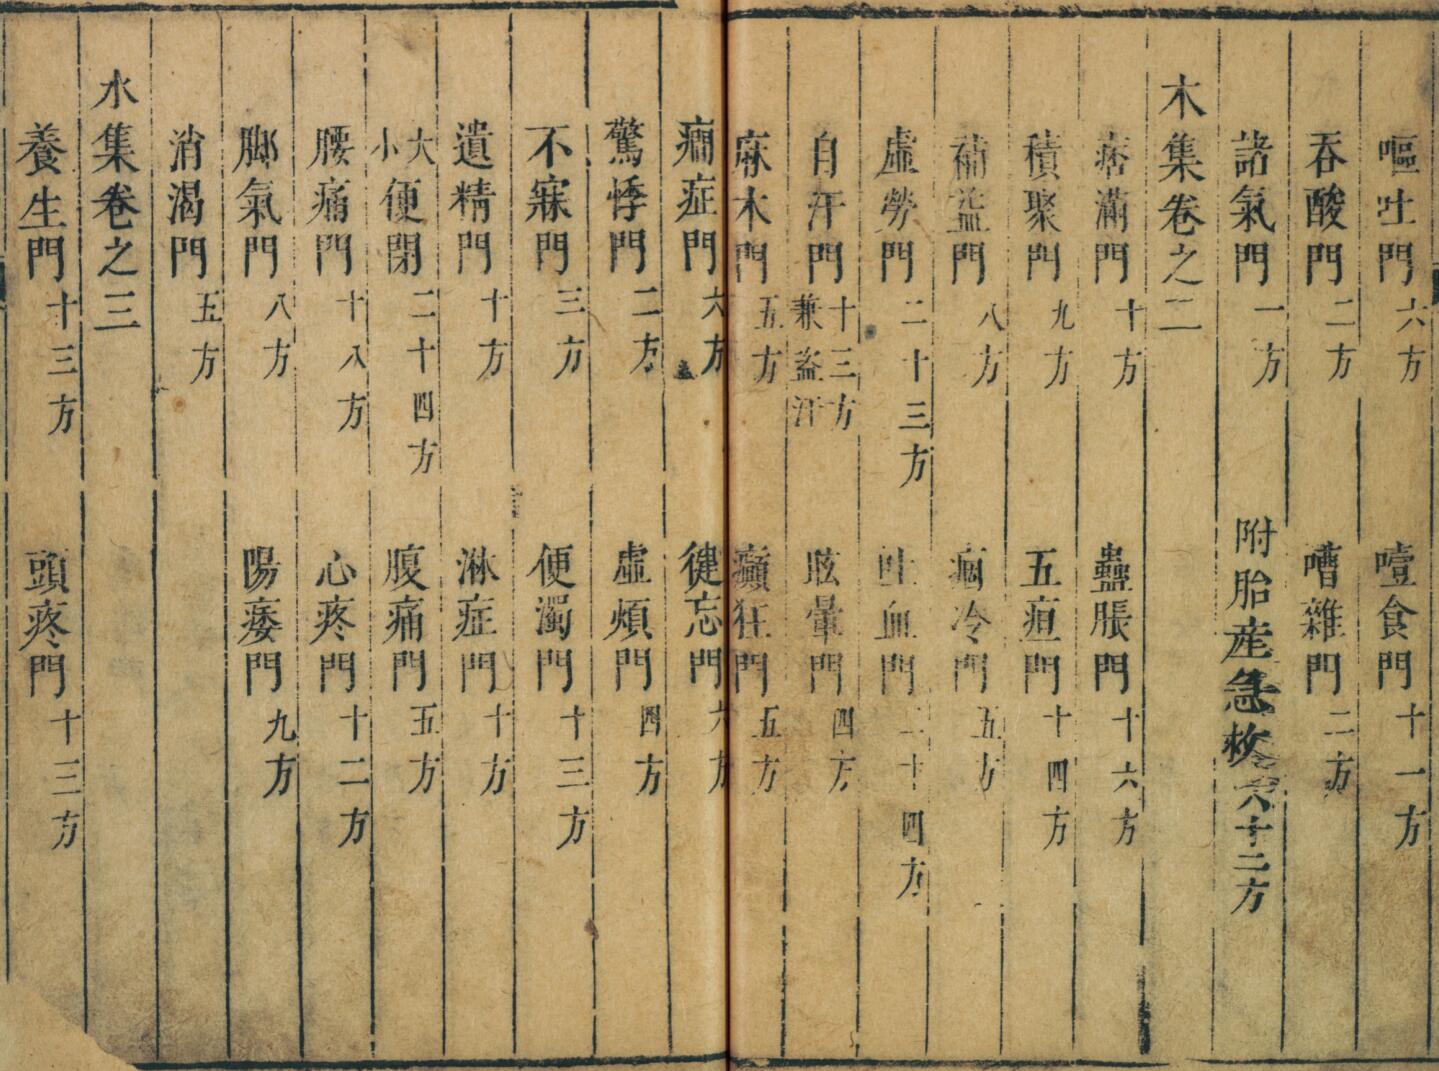 嘔吐門六方 噎食門十一方
吞酸門二方 嘈雜門二方
諸氣門一方 附胎産急救六十二方
木集卷之二
痞滿門十方 蠱脹門十六方
積聚門九方 五疸門十四方
補益門八方 痼冷門五方
虛勞門二十三方 吐血門二十四方
自汗門十三方兼盜汗 眩暈門四方
麻木門五方 癲狂門五方
癇症門六方 健忘門六方
驚悸門二方 虛煩門四方
不寐門三方 便濁門十三方
遺精門十方 淋症門十方
大小便閉二十四方 腹痛門五方
腰痛門十八方 心疼門十二方
脚氣門八方 陽痿門九方
消渴門五方
水集卷之三
養生門十三方 頭疼門十三方